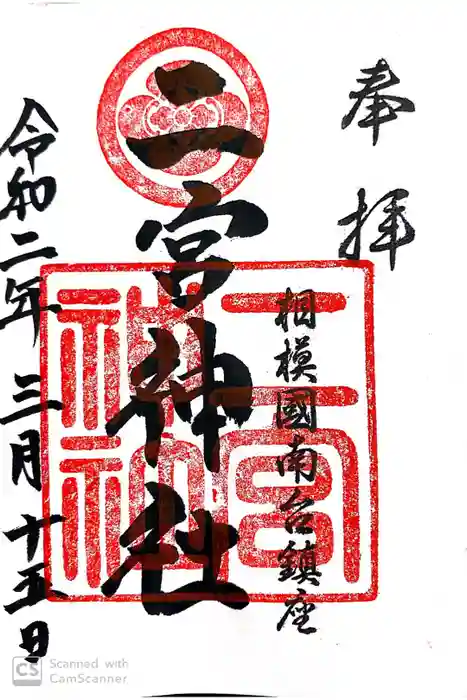 奉拝
相模國南台鎮座
二宮神社
二宮
神社
令和二年三月十五日
CS Scanned with
CamScanner